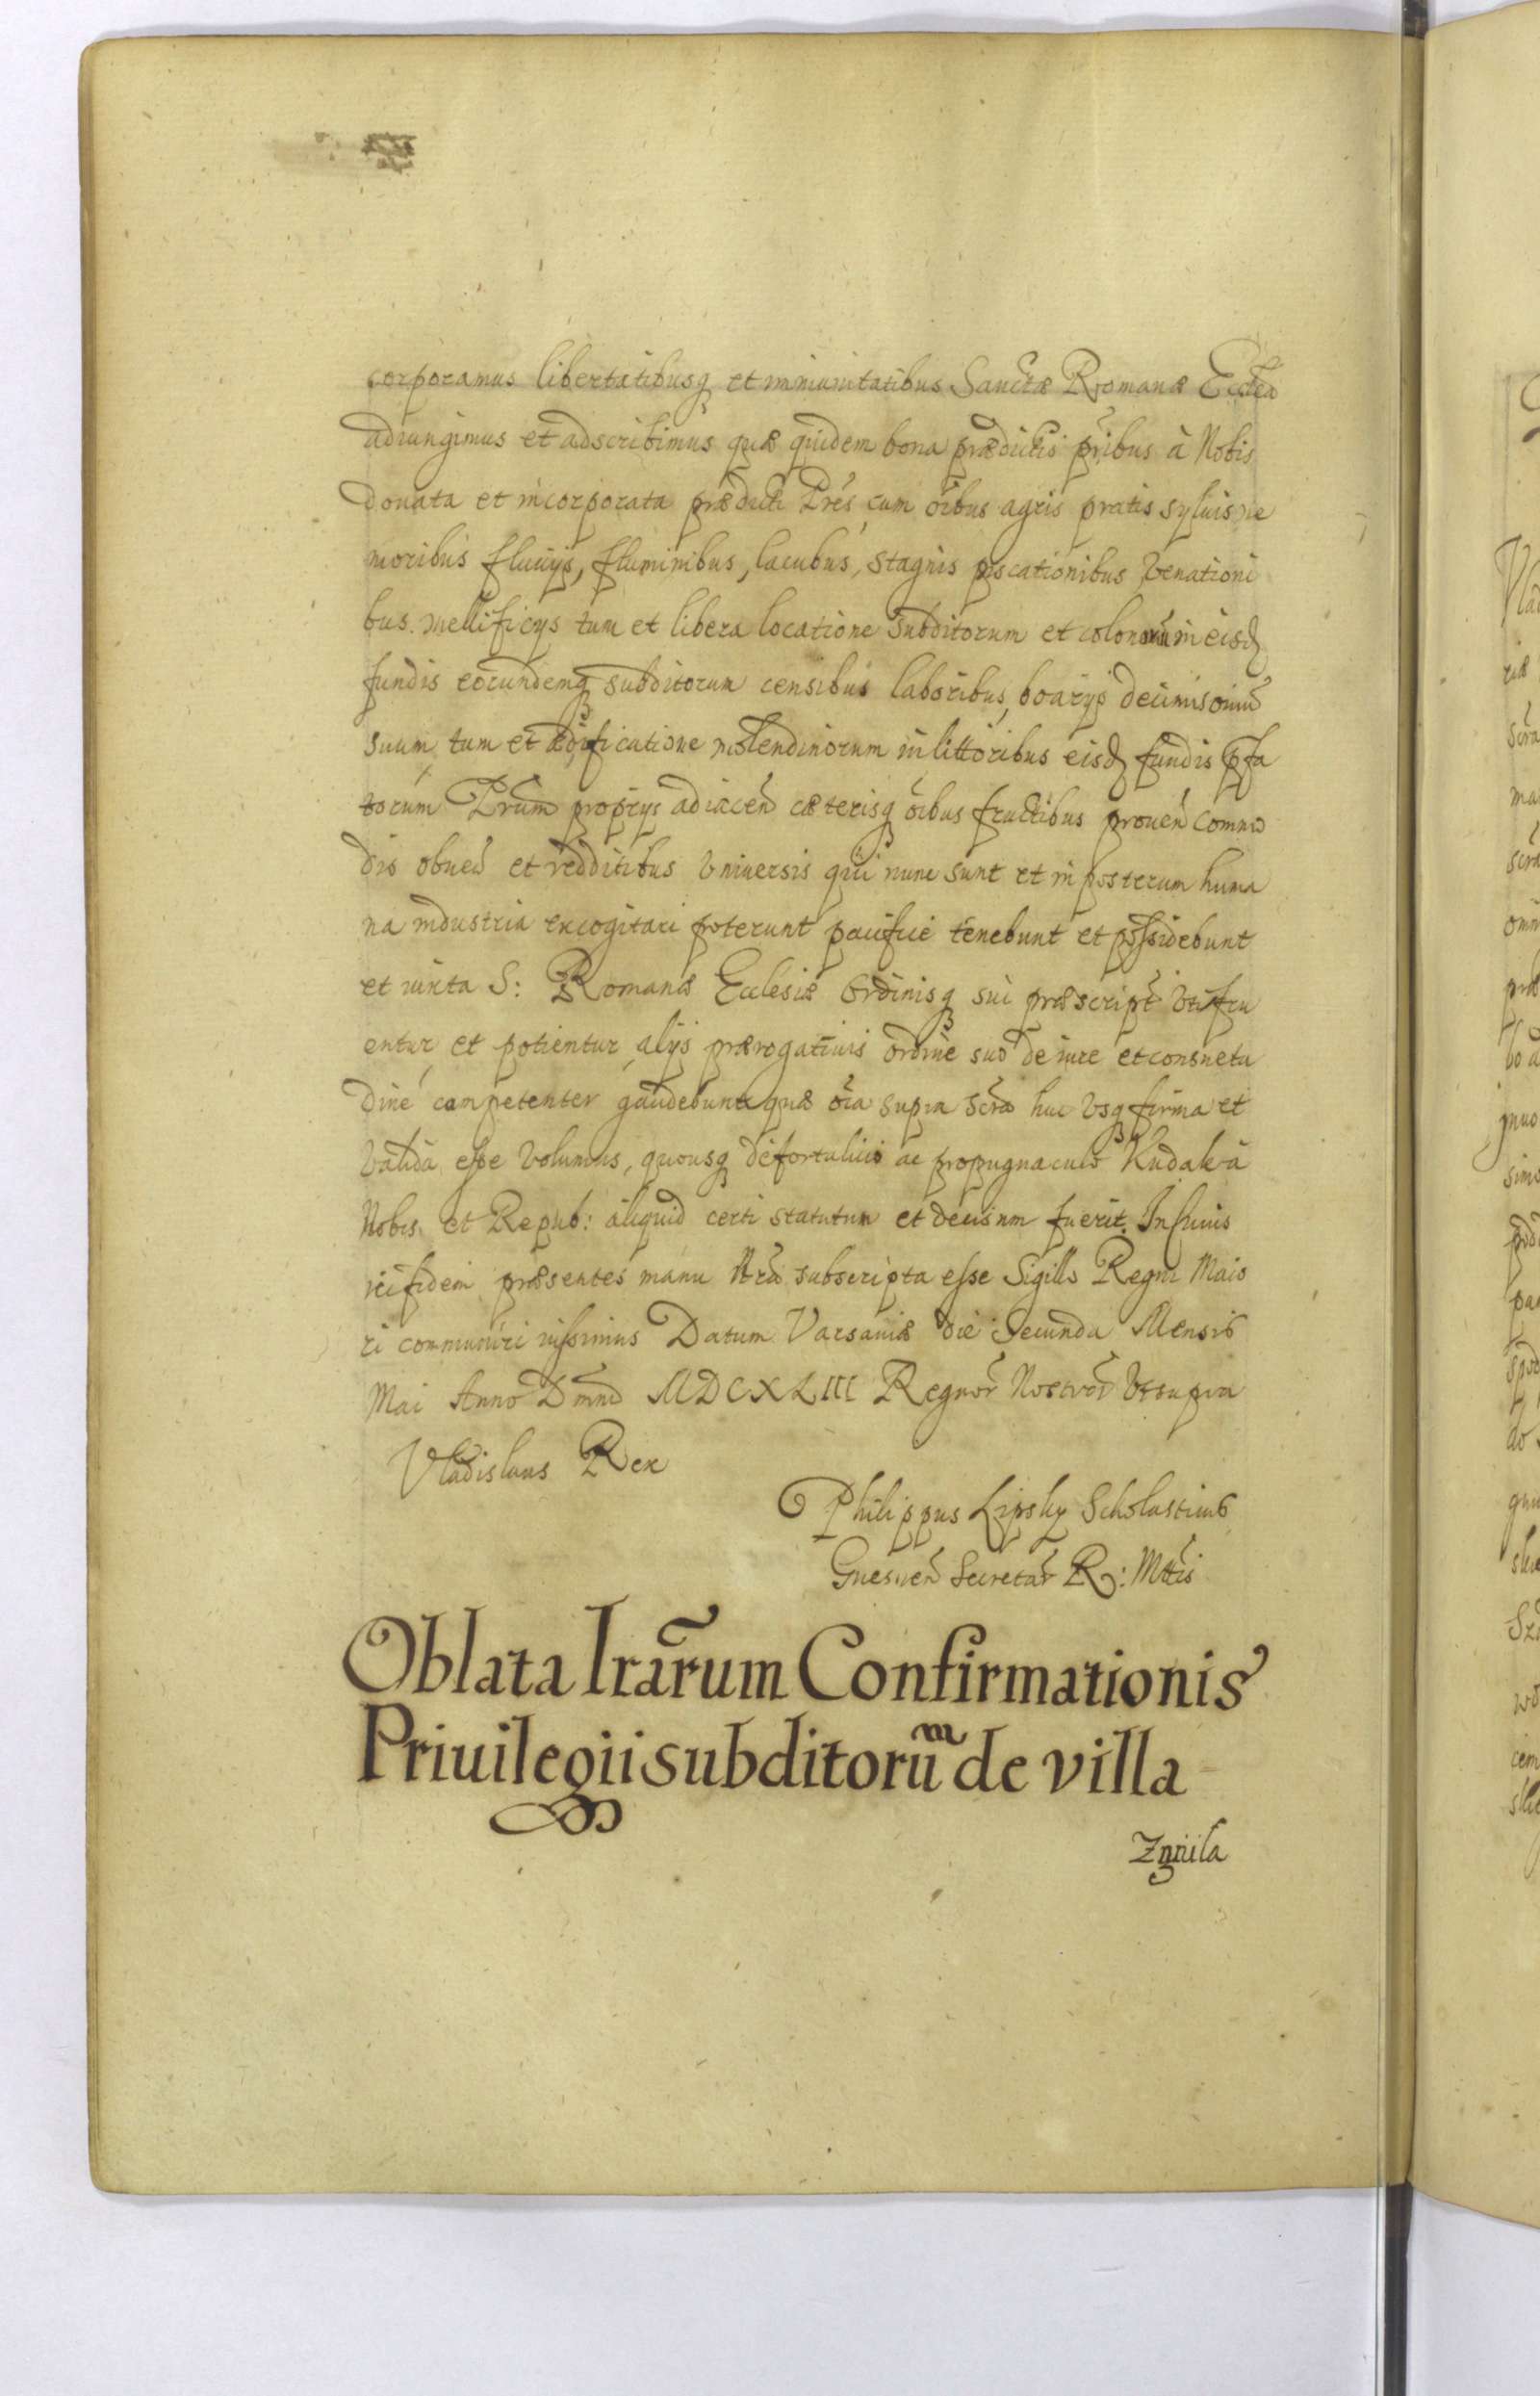 corporamus libertatibusq et immunitatibus Sanctæ Romanæ Eccleã
adiungimus et adscribimus quæ quidem bona prædictis pribus à Nobis
donata et incorporata prædicti Pres cum oibus agris pratis syluis ne
moribus fluuijs, fluminibus, lacubus, stagnis piscationibus Venationi
bus. mellificijs tum et libera locatione subditorum et colonorum in eisd
fundis eorundemq subditorum censibus laboribus, boarijs decimis
suum, tum et ædificatione molendinorum in littoribus eisd fundis pfa
torum Prum proprijs adiaceñ cæterisq oibus fructibus proueñ commo
dis obueñ et redditibus Vniuersis qui nunc sunt et in posterum huma
na industria excogitari poterunt pacificè tenebunt et possidebunt
et iuxta S: Romanæ Ecclesiæ Ordinisq sui præscript Vtifru
entur et potientur, alijs prærogatiuis ordine suo de iure et consuetu
dine competenter gaudebunt quæ oia supra scra huc Vsq firma et
Valida esse Volumus, quousq de fortalitio ac propugnaculo Kudak à
Nobis et Repub: aliquid certi statutum et decisum fuerit. In cuius
rei fidem præsentes manu Nrã subscripta esse Sigillo Regni Maio
ri communiri iussimus Datum Varsauiæ die Secunda Mensis
Mai Anno Dmni MDCXLIII Regnor Nostror Vt supra
Vladislaus Rex
Philippus Lipsky Scholasticus
Gnesneñ Secretar R: Mttis
Oblata lrarum Confirmationis
Priuilegii subditorum de villa